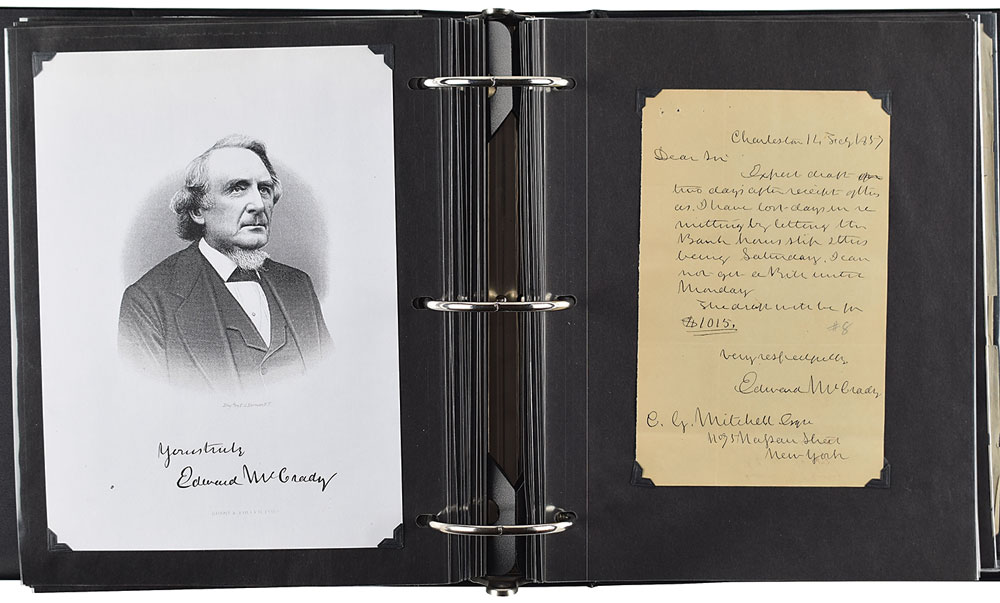 Yours truly
Edward McCrady
Charleston 14 Feby 1857
Dear Sir
Expect draft
two days after receipt of this
as I have lost days in re
mitting by letting the
Bank hours slip & this
being Saturday. I can
not get a Bill until
Monday
The draft will be for
$1015.
#8
Very respectfully
Edward McCrady
C. G. Mitchell Esqr
Nassau Street
New York